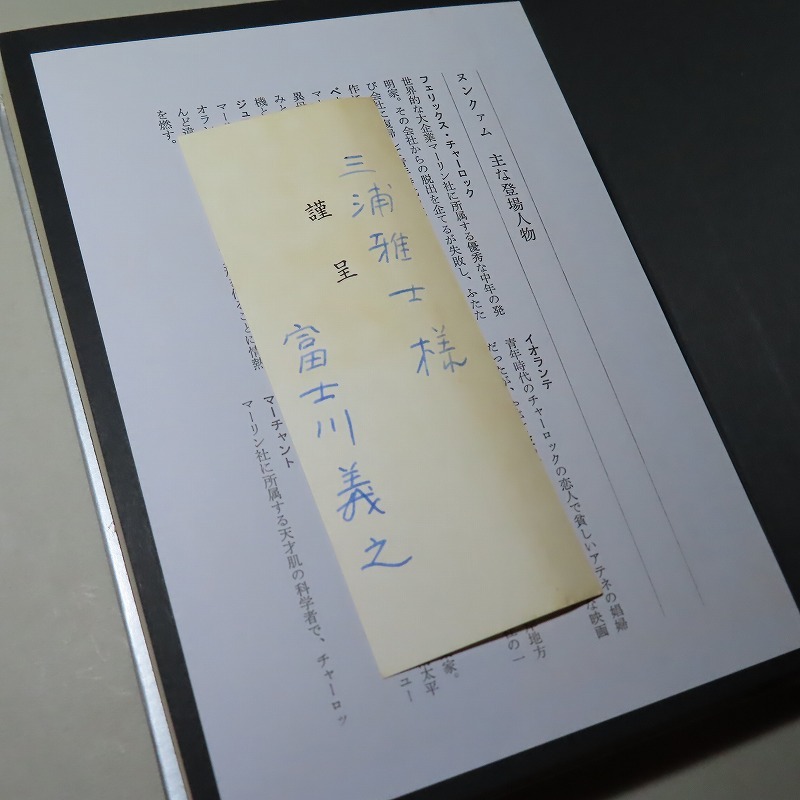 ヌンクァム 主な登場人物
フェリックス・チャーロック
世界的な大企業マーリン社に所属する優秀な中年の発
明家。その会社からの脱出を企てるが失敗し、ふたた
び会社に復帰
ジュ
マー
オラン
んど違
を燃す。
イオランテ
青年時代のチャーロックの恋人で貧しいアテネの娼婦
だったが、
な映画
地方
の一
家。
太平
ュー
ことに情熱
マーチャント
マーリン社に所属する天才肌の科学者で、チャーロッ
三浦雅士様
謹呈
富士川義之